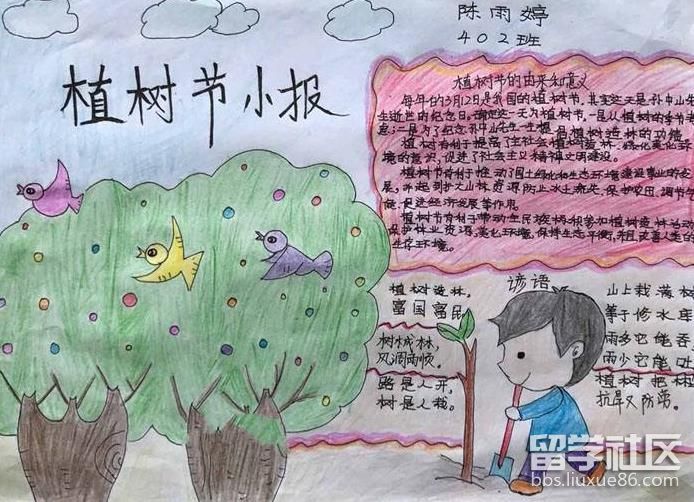 陈雨婷
402班
植树节小报
植树节的由来和意义
每年的3月12日是我国的植树节,其实这天是孙中山先
生逝世的纪念日。确定这一天为植树节,一是从植树的季节考
虑;二是为了纪念孙中山先生一生提倡植树造林的功绩。
植树有利于提高了全社会植树造林、绿化美化环
境的意识,促进了社会主义精神文明建设。
植树节有利于推动了国土绿化和生态环境建设事业的发
展,并起到扩大山林资源、防止水土流失、保护农田、调节
促进经济发展等作用。
植树节有利于带动全民族积极参加植树造林活动
保护林业资源,美化环境,保持生态平衡,并且改善人类的
生存环境。
谚语
植树造林,
富国富民
树木成林,
风调雨顺。
路是人开,
树是人栽。
山上栽满树
等于修水库
雨多它能吞
雨少它能吐
植树把林
抗旱又防涝。
留学社区
bbs.liuxue86.com